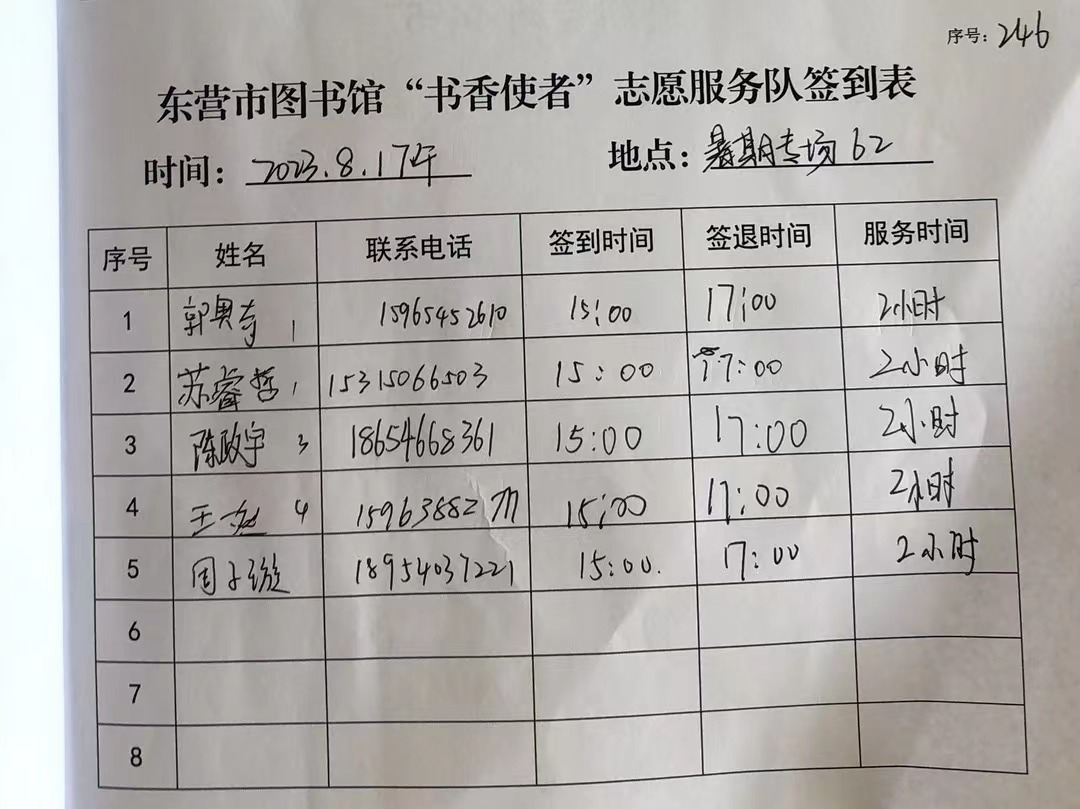 序号: 246
东营市图书馆“书香使者”志愿服务队签到表
时间: 2023.8.17午 地点: 暑期专场62
序号 姓名 联系电话 签到时间 签退时间 服务时间
1 郭奥奇 1 15965452610 15:00 17:00 2小时
2 苏睿哲 1 15315066503 15:00 17:00 2小时
3 陈政宇 3 18654668361 15:00 17:00 2小时
4 王 4 15:00 17:00 2小时
5 周子璇 18954037221 15:00. 17:00 2小时
6
7
8